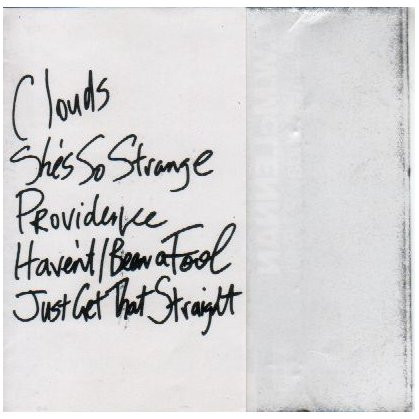 Clouds
She's So Strange
Providence
Haven't I Been a Fool
Just Get That Straight